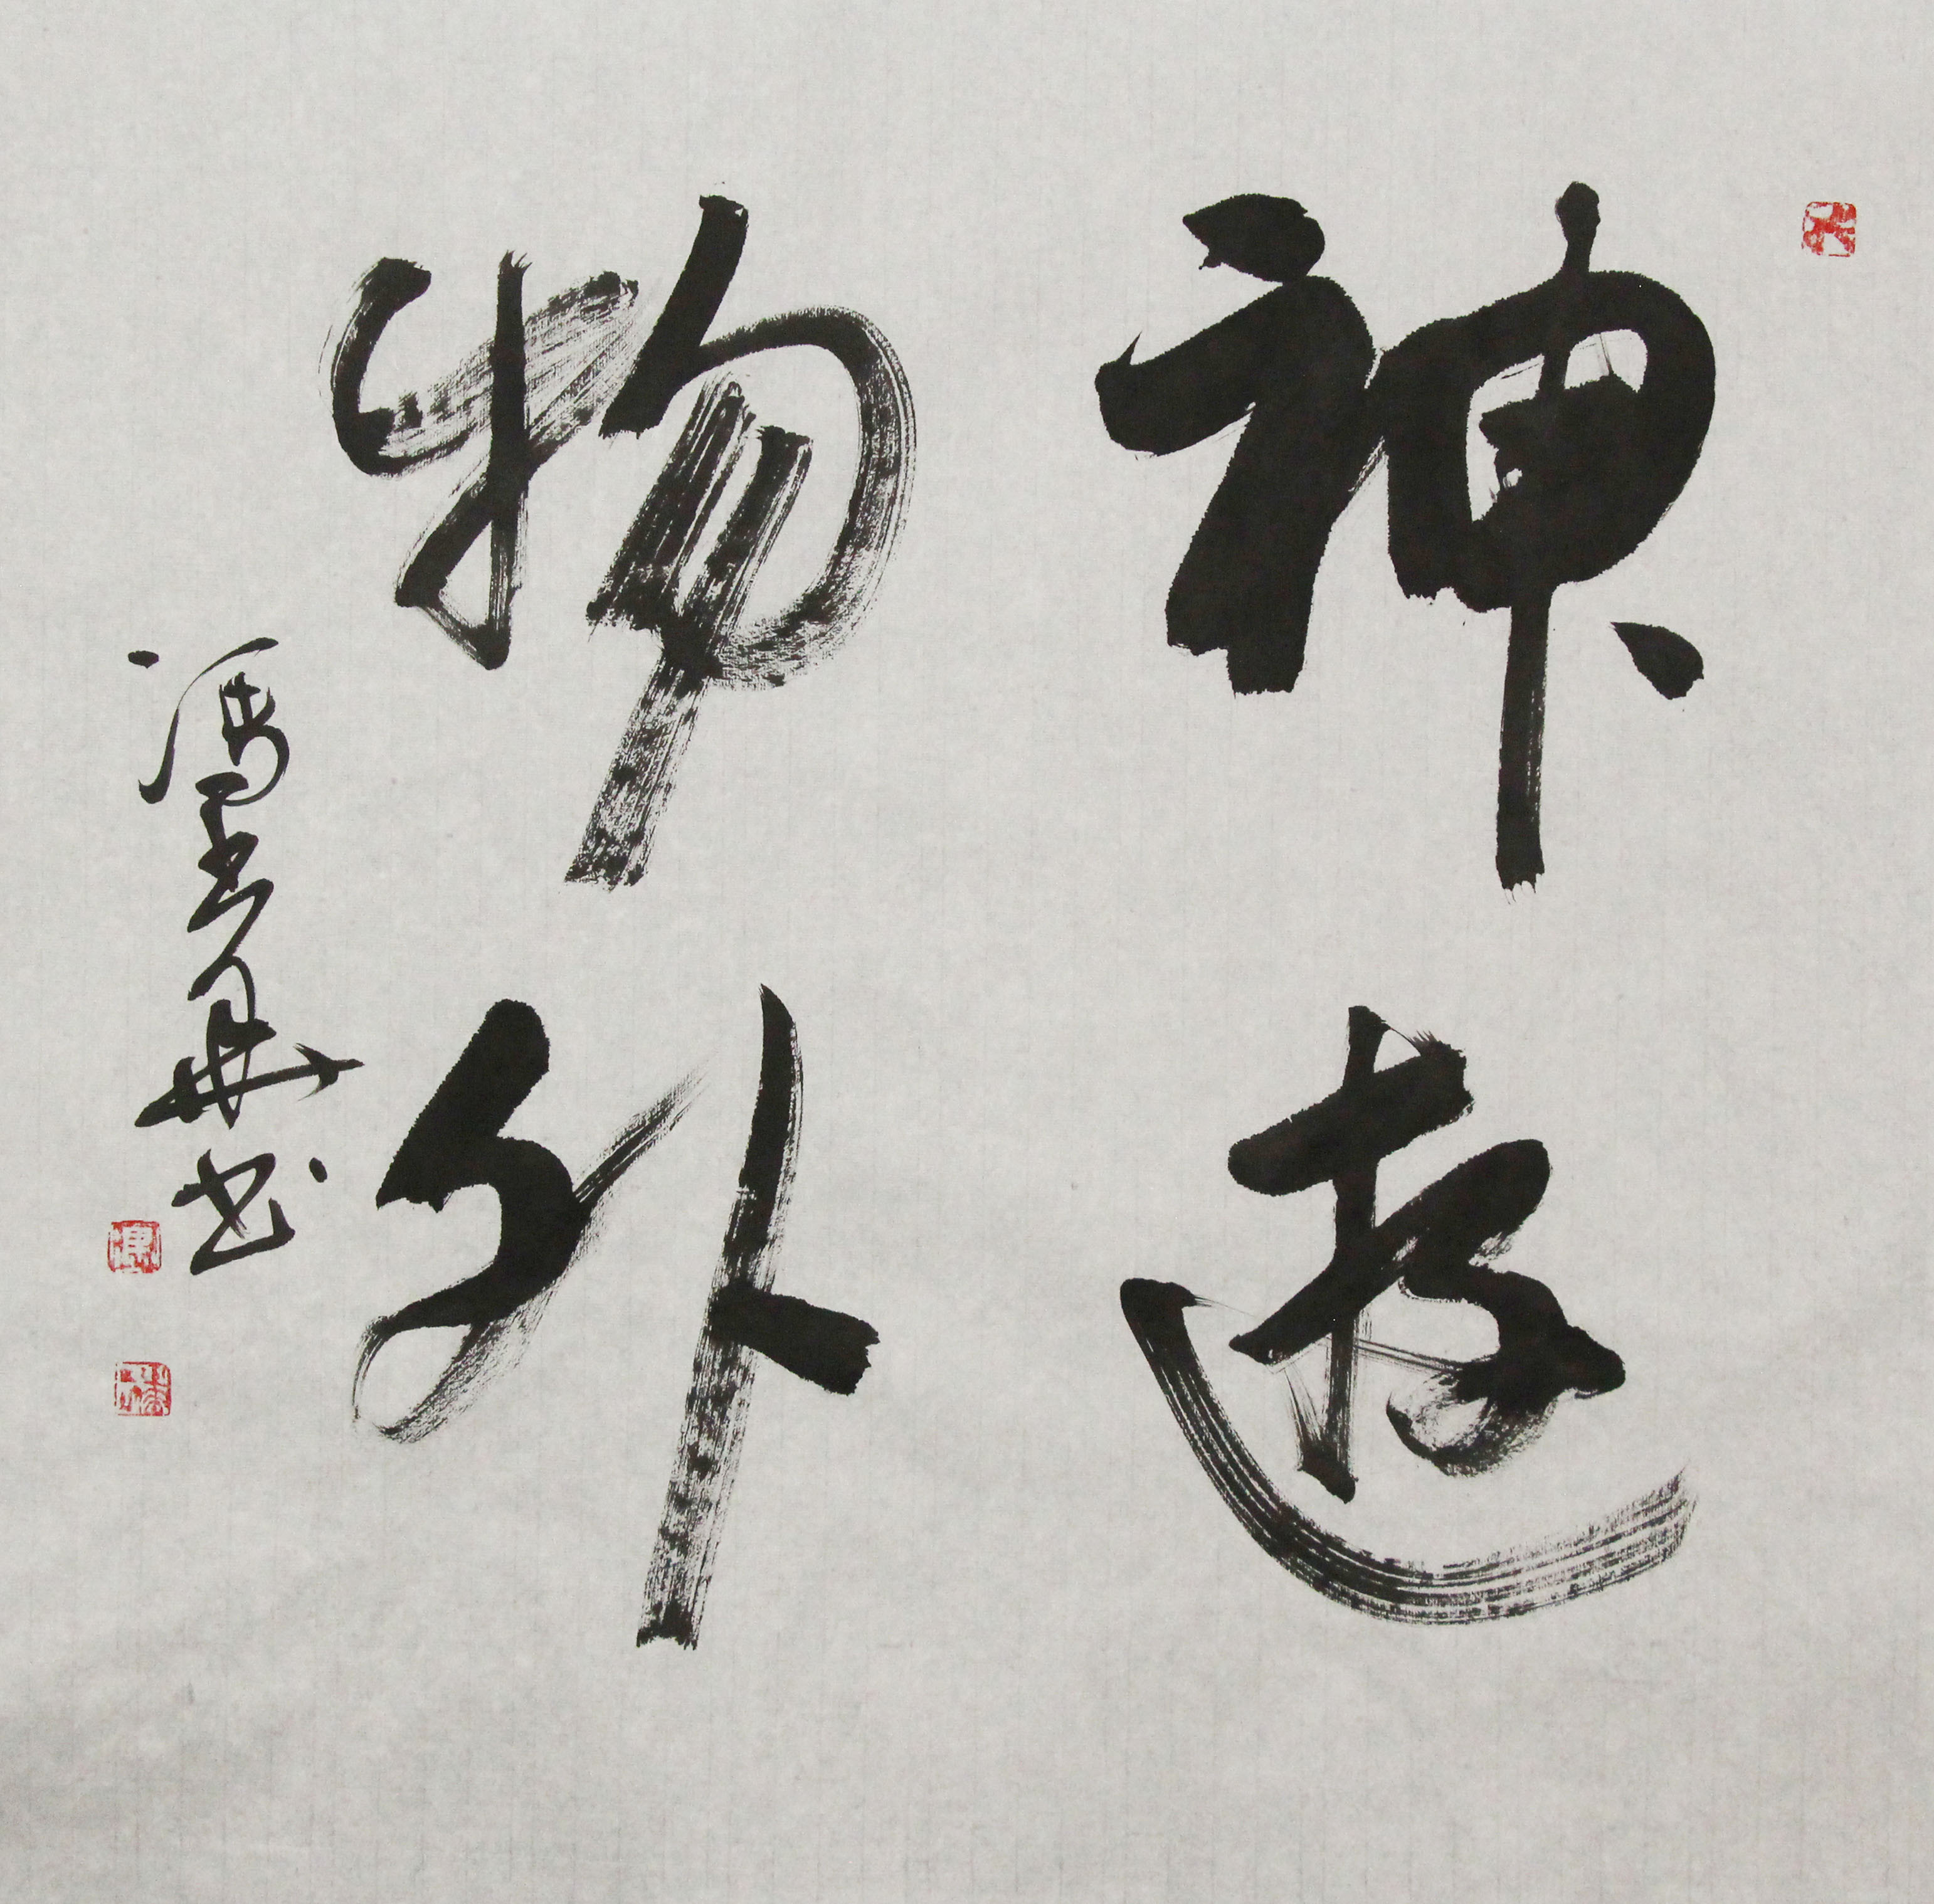 神遊
物外